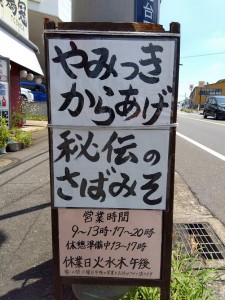 やみつき
からあげ
秘伝の
さばみそ
営業時間
9～13時・17～20時
休憩準備中13～17時
休業日火水木午後
台